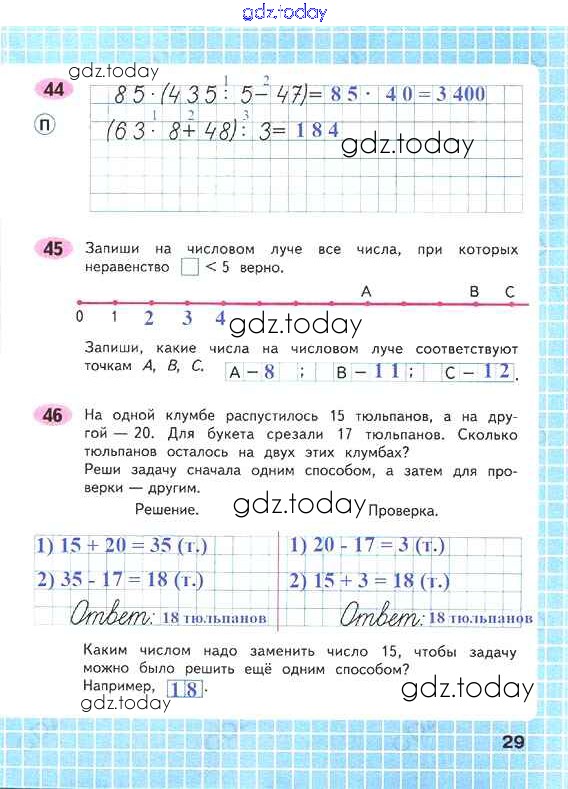 gdz.today
gdz.today
44
85·(435:5-47)= 85 · 40 = 3 400
1 2
П
(63·8+48):3= 184
1 2 3
gdz.today
45
Запиши на числовом луче все числа, при которых
неравенство □ < 5 верно.
A B C
0 1 2 3 4
gdz.today
Запиши, какие числа на числовом луче соответствуют
точкам A, B, C. A – 8 ; B – 11 ; C – 12 .
46
На одной клумбе распустилось 15 тюльпанов, а на дру-
гой — 20. Для букета срезали 17 тюльпанов. Сколько
тюльпанов осталось на двух этих клумбах?
Реши задачу сначала одним способом, а затем для про-
верки — другим.
gdz.today
Решение. Проверка.
1) 15 + 20 = 35 (т.) 1) 20 - 17 = 3 (т.)
2) 35 - 17 = 18 (т.) 2) 15 + 3 = 18 (т.)
gdz.today gdz.today
Ответ: 18 тюльпанов Ответ: 18 тюльпанов
Каким числом надо заменить число 15, чтобы задачу
можно было решить ещё одним способом?
Например, 18 .
gdz.today
gdz.today
29